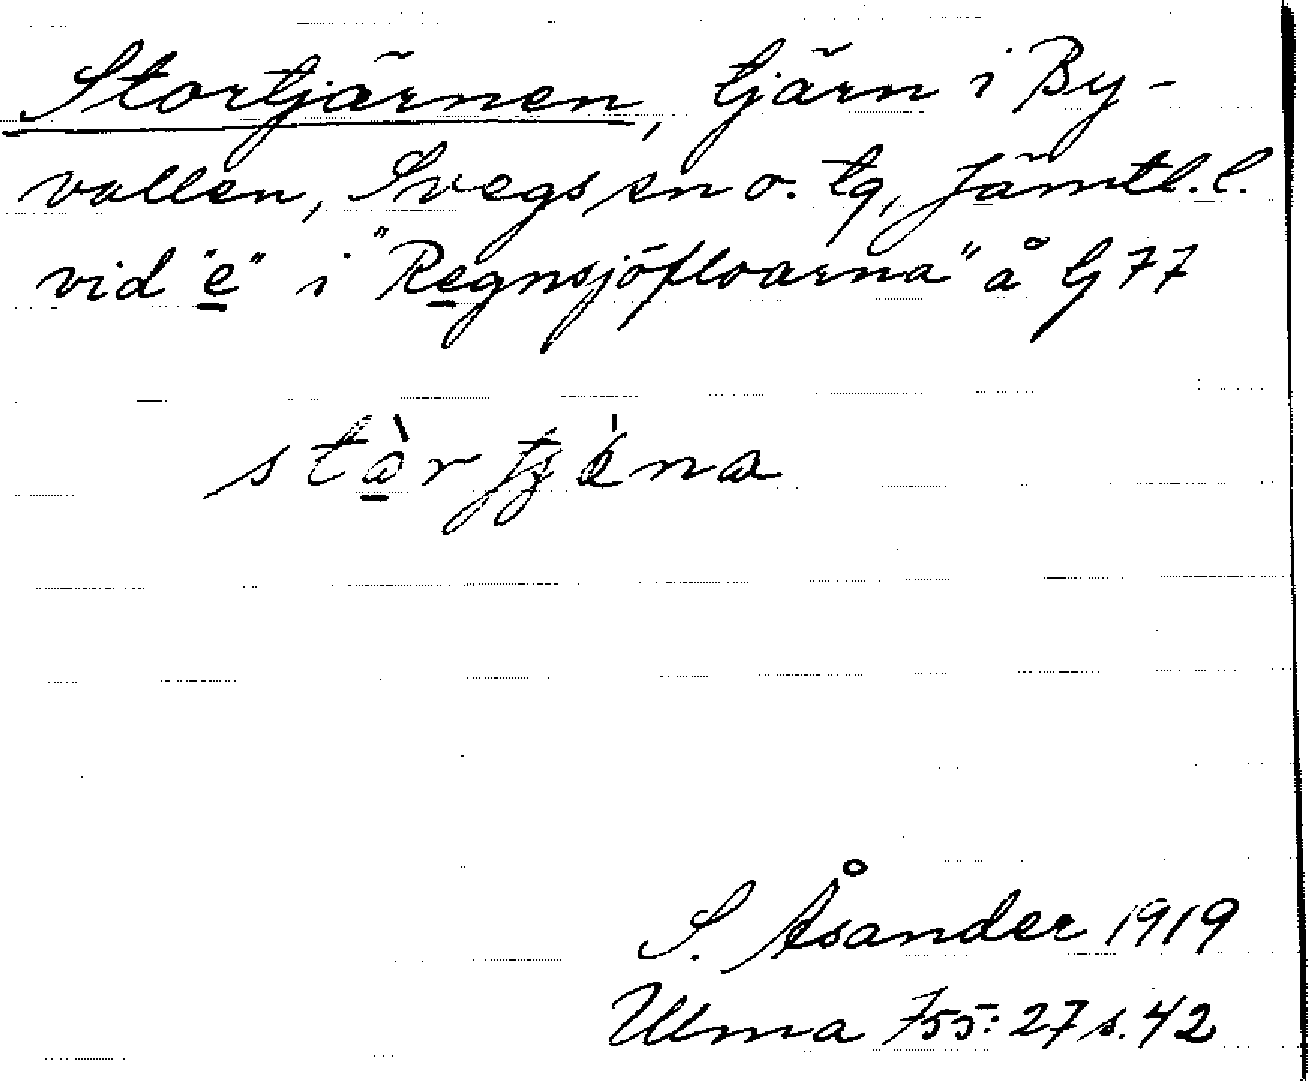 Stortjärnen, tjärn i By-
vallen, Svegs sn o. tg, Jämtl. l.
vid "e" i "Regnsjöfloarna" å G 77
S. Åsander 1919
Ulma 755: 27 s. 42